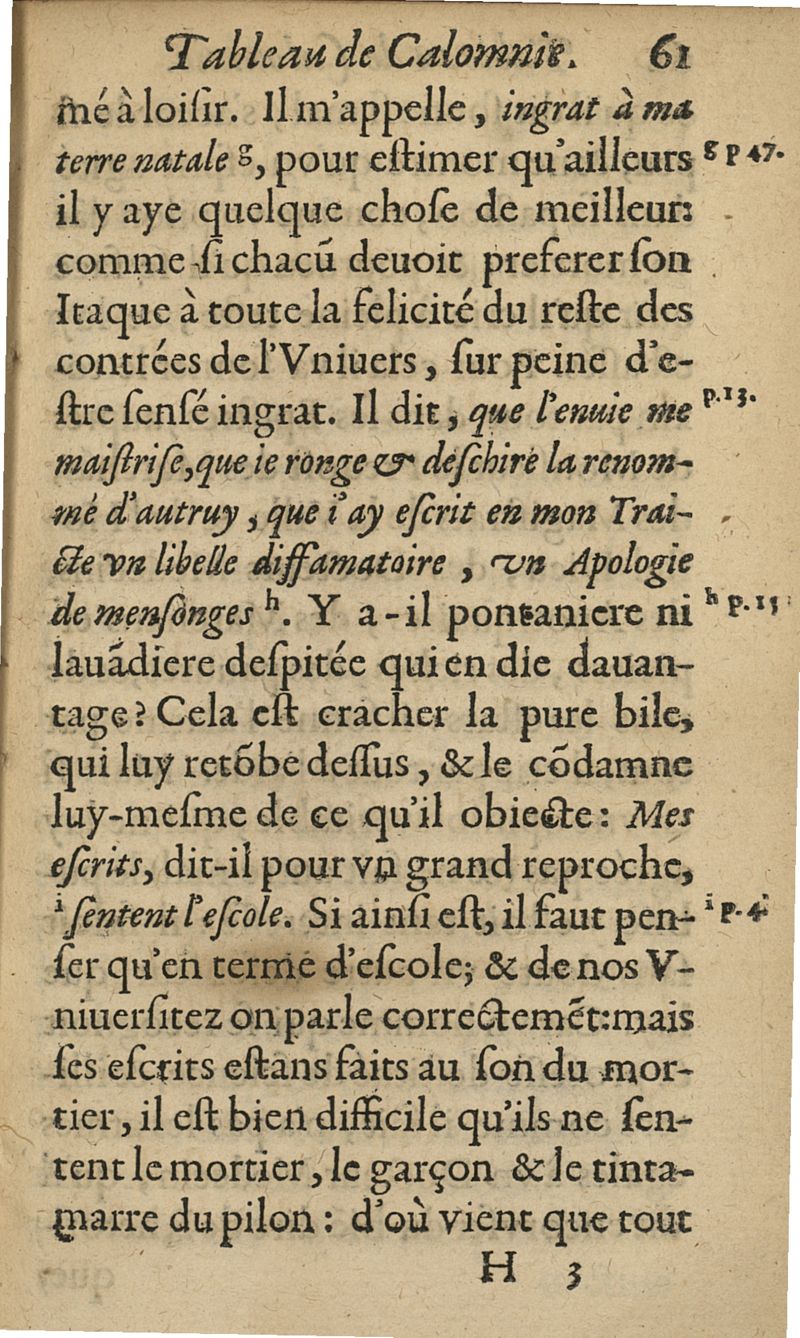 Tableau de Calomnie. 61
mé à loiſir. Il m'appelle, ingrat à ma
terre natale g, pour eſtimer qu'ailleurs g p 47.
il y aye quelque choſe de meilleur:
comme ſi chacū deuoit preferer ſon
Itaque à toute la felicité du reſte des
contrées de l'Vniuers, ſur peine d'e-
ſtre ſenſé ingrat. Il dit, que l'enuie me p.13.
maiſtriſe, que ie ronge & deſchire la renom-
mé d'autruy, que i'ay eſcrit en mon Trai-
cte vn libelle diffamatoire, vn Apologie
de menſonges h. Y a-il pontaniere ni h p.13
lauādiere deſpitée qui en die dauan-
tage? Cela eſt cracher la pure bile,
qui luy retōbe deſſus, & le cōdamne
luy-meſme de ce qu'il obiecte: Mes
eſcrits, dit-il pour vn grand reproche,
i ſentent l'eſcole. Si ainſi eſt, il faut pen- i p.4.
ſer qu'en terme d'eſcole; & de nos V-
niuerſitez on parle correctemēt: mais
ſes eſcrits eſtans faits au ſon du mor-
tier, il eſt bien difficile qu'ils ne ſen-
tent le mortier, le garçon & le tinta-
marre du pilon: d'où vient que tout
H 3